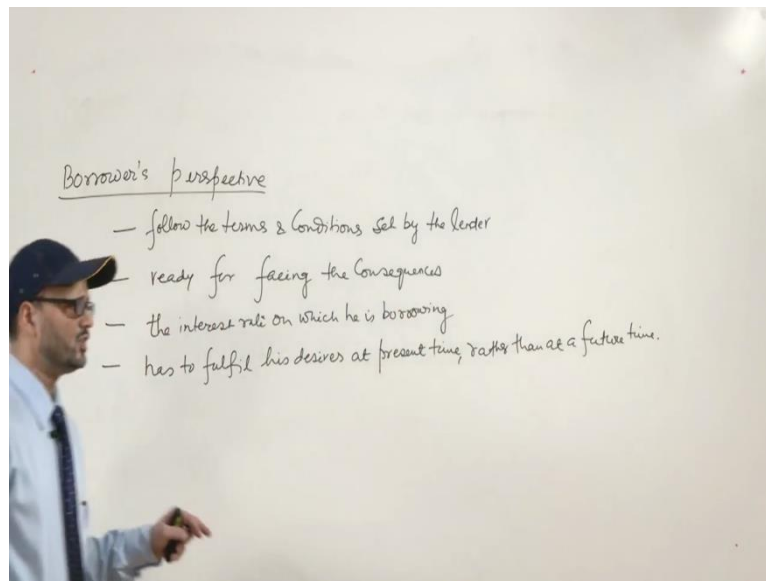 Borrower's perspective
— follow the terms & Conditions set by the lender
— ready for facing the Consequences
— the interest rate on which he is borrowing
— has to fulfil his desires at present time, rather than at a future time.